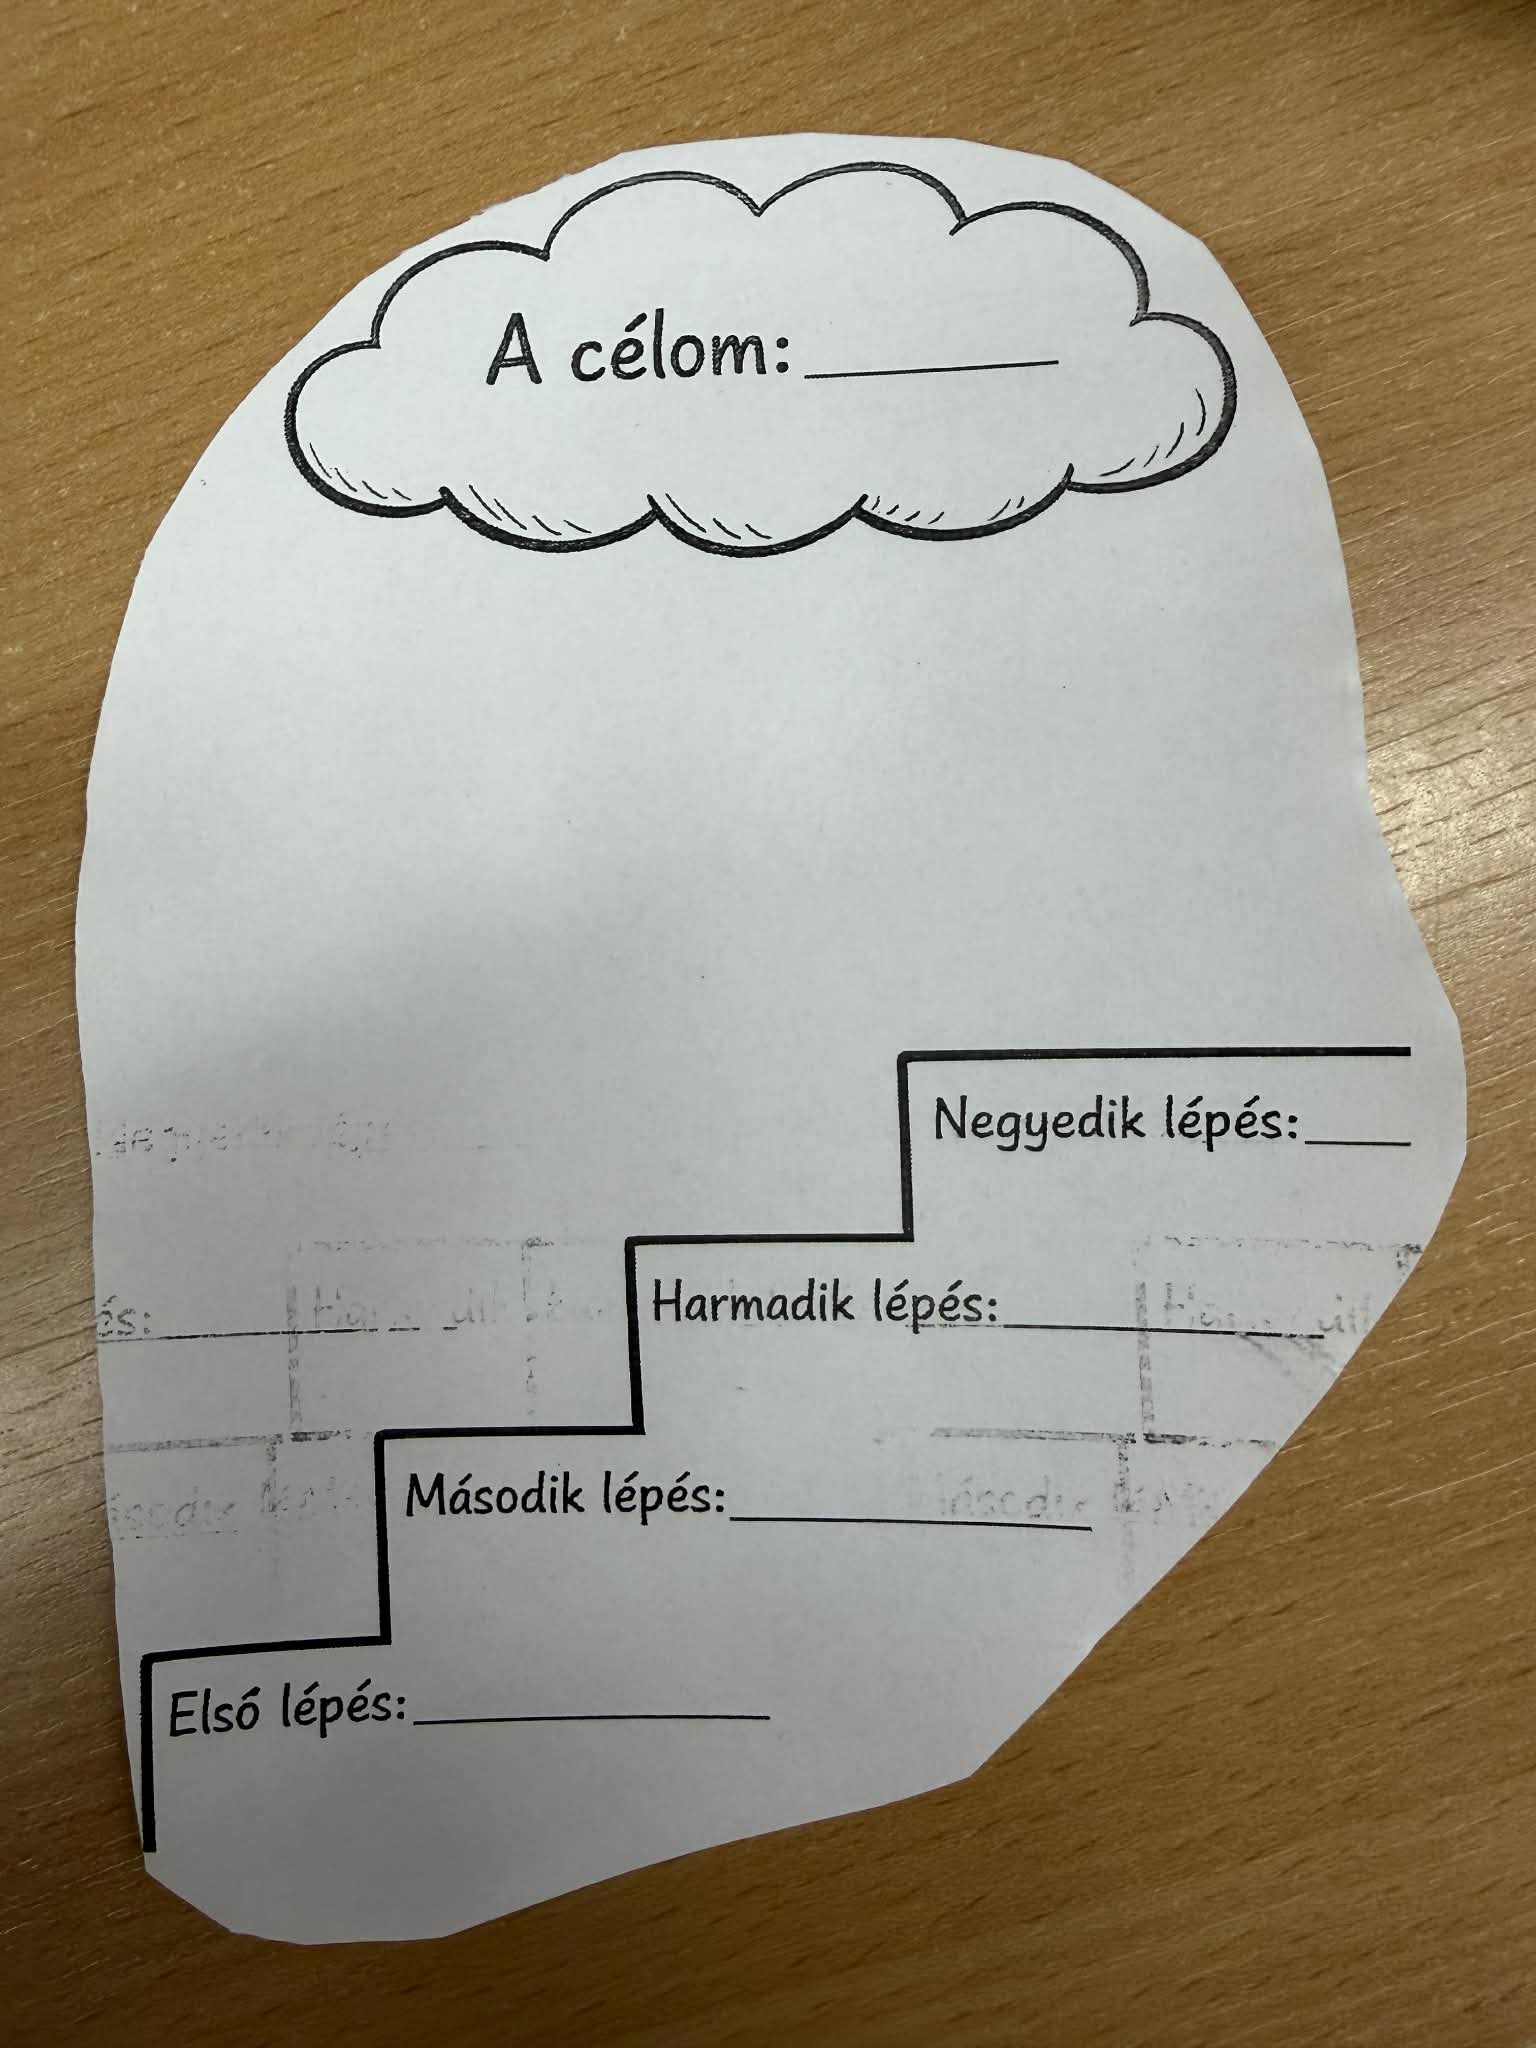 A célom:
Negyedik lépés:
Harmadik lépés:
és:
Második lépés:
Elsó lépés: